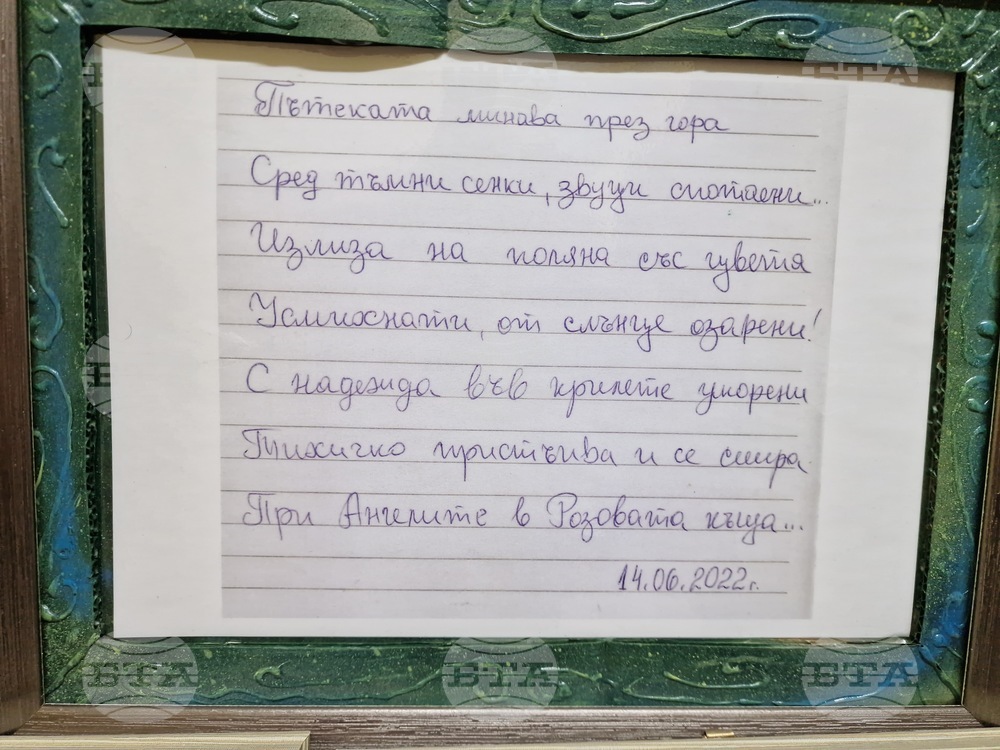 Пътеката минава през гора
Сред тъмни сенки, звуци спотаени...
Излиза на поляна със цветя
Усмихнати, от слънце озарени!
С надежда във крилете уморени
Тихичко пристъпва и се спира
При Ангелите в Розовата къща...
14.06.2022г.
БТА
БТА
БТА
БТА
БТА